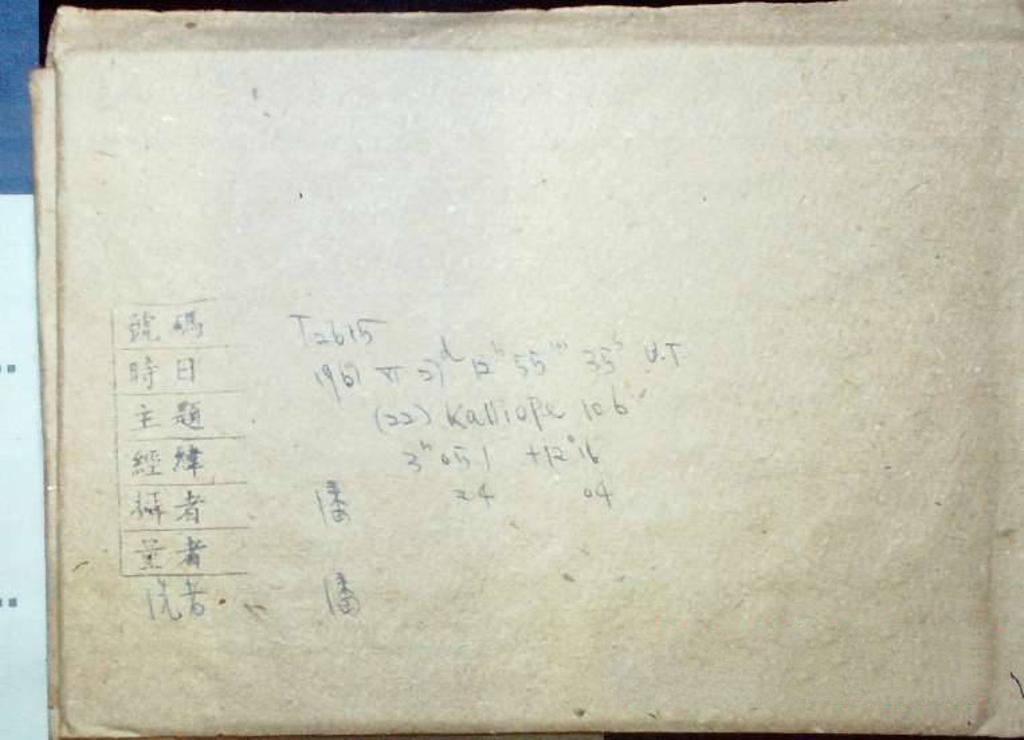 號碼 T2615
時日 1961 VI 27ᵈ 12ʰ 55ᵐ 35ˢ U.T
主題 (22) Kalliope 10.6
經緯 3ʰ 05.1 +12°16
24 04
攝者 潘
量者
洗者 潘